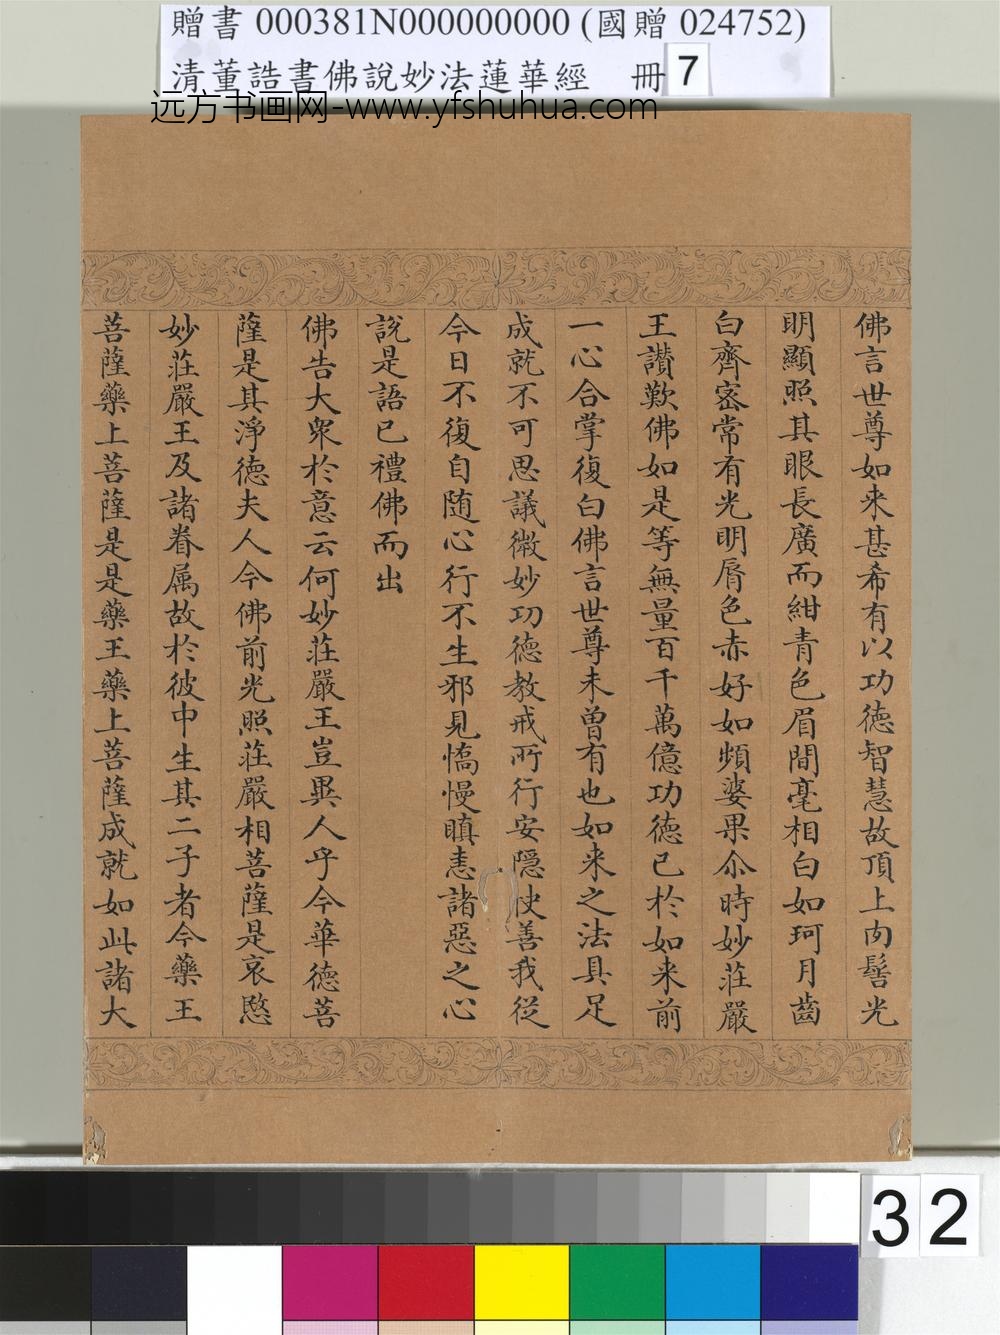 贈書 000381N000000000 (國贈 024752)
清董誥書佛說妙法蓮華經 冊 7
远方书画网-www.yfshuhua.com
佛言世尊如来甚希有以功德智慧故頂上肉髻光
明顯照其眼長廣而紺青色眉間毫相白如珂月齒
白齊密常有光明脣色赤好如頻婆果尒時妙莊嚴
王讚歎佛如是等無量百千萬億功德已於如来前
一心合掌復白佛言世尊未曾有也如来之法具足
成就不可思議微妙功德教戒所行安隱快善我從
今日不復自随心行不生邪見憍慢瞋恚諸惡之心
說是語已禮佛而出
佛告大衆於意云何妙莊嚴王豈異人乎今華德菩
薩是其淨德夫人今佛前光照莊嚴相菩薩是哀愍
妙莊嚴王及諸眷属故於彼中生其二子者今藥王
菩薩藥上菩薩是是藥王藥上菩薩成就如此諸大
32